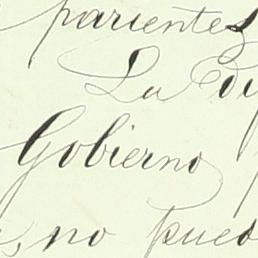 parientes
La
Gobierno
no